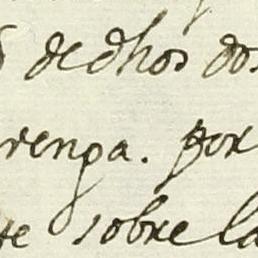 de dhos dos
venga. por
te sobre la